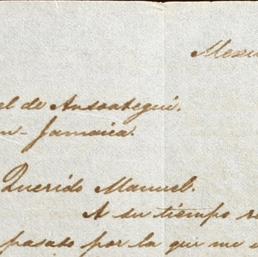 Mexi
el de Ansoategui.
on - Jamaica.
Querido Manuel.
A su tiempo re
pasado por la que me